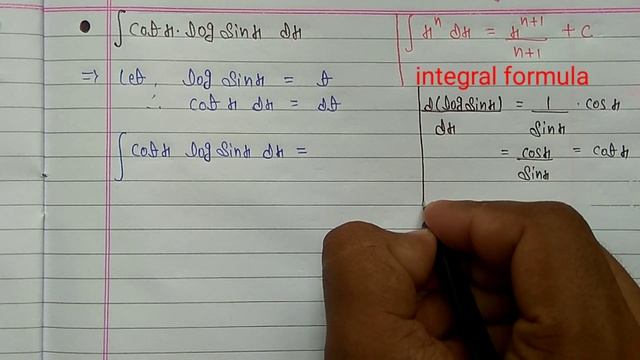 ∫ cot x · log sin x dx
⇒ Let, log sin x = t
∴ cot x dx = dt
∫ cot x log sin x dx =
∫ xⁿ dx = xⁿ⁺¹/n+1 + c
integral formula
d(log sin x)/dx = 1/sin x · cos x
= cos x/sin x = cot x